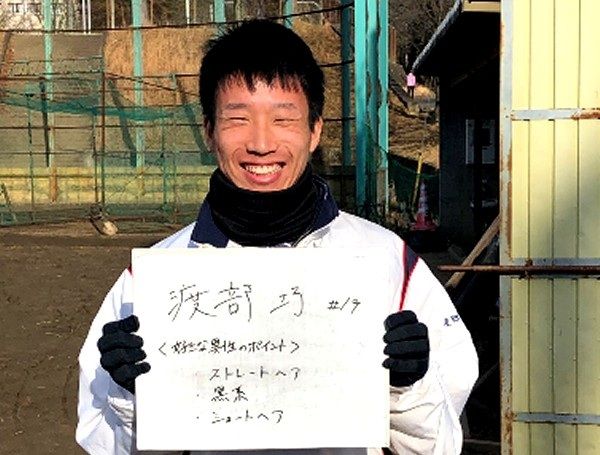 渡部 巧 #19
〈好きな異性のポイント〉
・ストレートヘア
・黒系
・ショートヘア